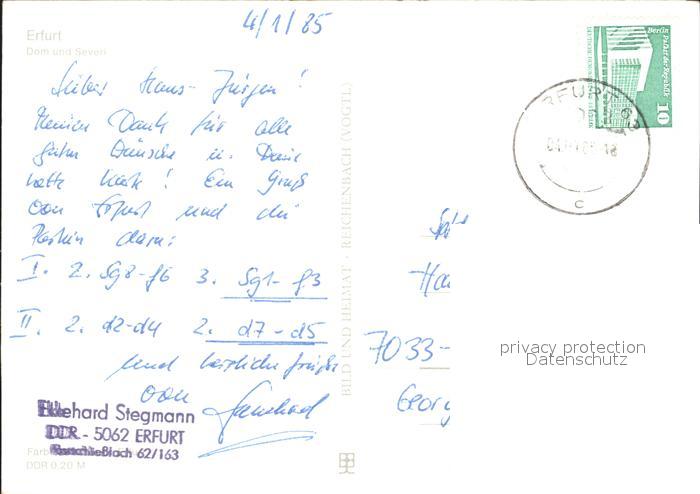 4/1/85
Erfurt
Dom und Severi
Lieber Hans-Jürgen!
Meinen Dank für alle
guten Wünsche u. Deine
nette Karte! Ein Gruß
von Erfurt und die
Partien dazu:
I. 2. Sg8-f6 3. Sg1-f3
II. 2. d2-d4 2. d7-d5
und herzliche Grüße
von
Ekkehard Stegmann
DDR - 5062 ERFURT
62/163
DDR 0,20 M
BILD UND HEIMAT · REICHENBACH (VOGTL)
Berlin Palast der Republik
10
ERFURT
c
Ha
7033-
Georg
privacy protection
Datenschutz